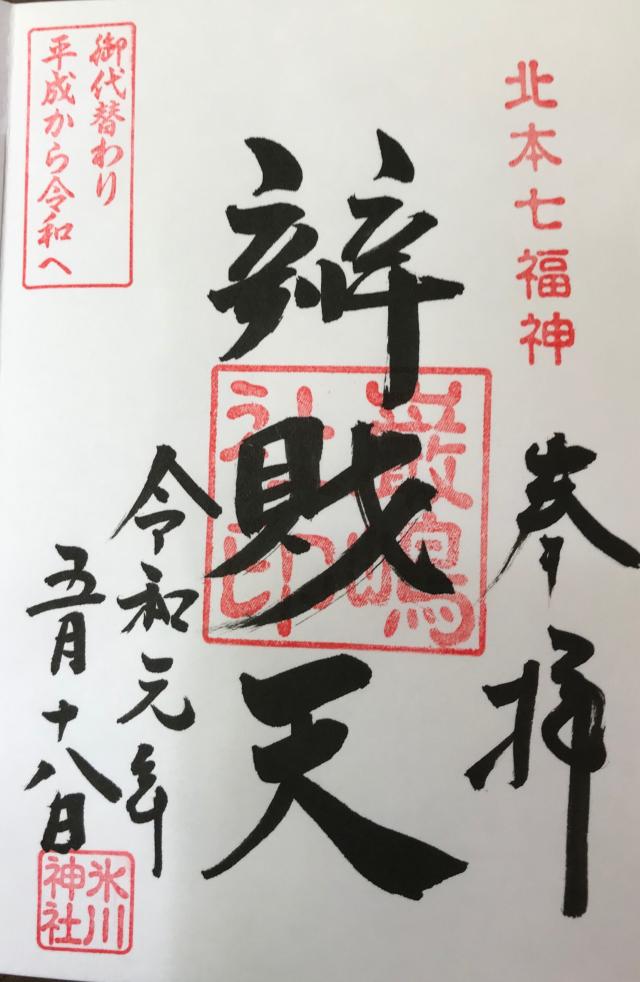 北本七福神
奉拝
辨財天
厳嶋
社印
令和元年
五月十八日
御代替わり
平成から令和へ
氷川
神社